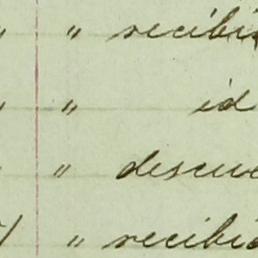 " " recibi
" " id
" descue
" recibid